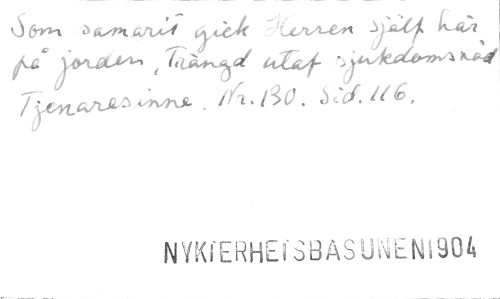 Som samarit gick Herren själf här
på jorden, Trängd utaf sjukdomsnöd
Tjenaresinne. Nr. 130. Sid. 116.
NYKTERHETSBASUNEN 1904